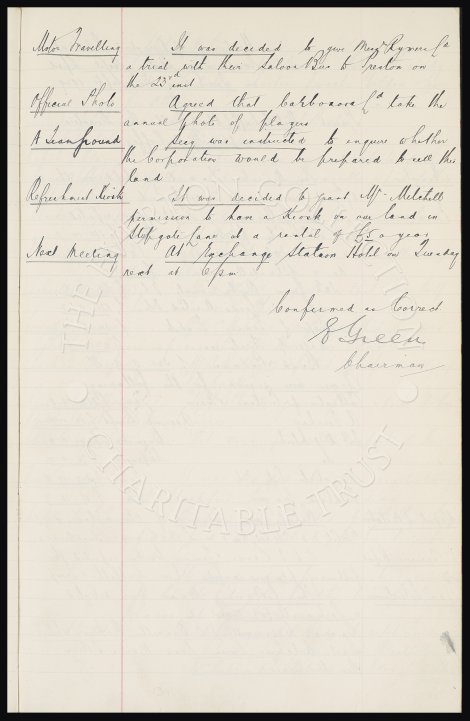 Motor Travelling It was decided to give Messrs Rymers Ld
a trial with their Saloon Bus to Preston on
the 23rd inst
Official Photo Agreed that Carbonora Ld take the
annual Photo of players
A Trainground Secy was instructed to enquire whether
the Corporation would be prepared to sell this
land
Refreshment Kiosk It was decided to grant Mr Mitchell
permission to have a Kiosk on our land in
gate Lane at a rental of £5 a year
Next Meeting At Exchange Station Hotel on Tuesday
next at 6pm
Confirmed as Correct
E Green
Chairman
THE
CHARITABLE TRUST